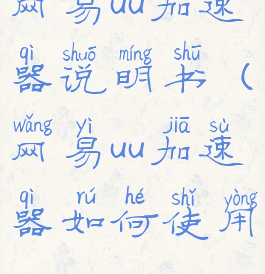 网易uu加速
qì shuō míng shū
器说明书（
wǎng yì jiā sù
网易uu加速
qì rú hé shǐ yòng
器如何使用